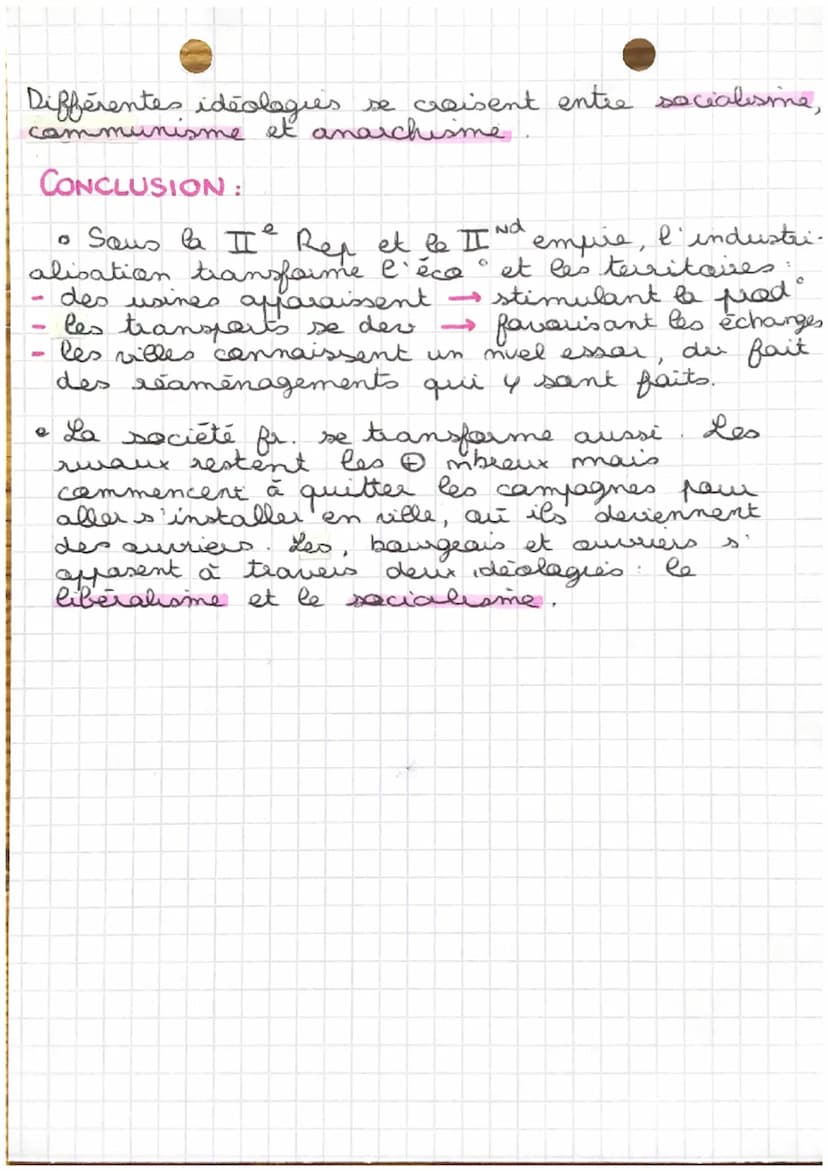 Différentes idéologies se croisent entre socialisme,
communisme et anarchisme.
CONCLUSION :
• Sous la IIe Rep et le IInd empire, l'industri-
alisation transforme l'éco° et les territoires :
- des usines apparaissent → stimulant la prod°
- les transports se dev → favorisant les échanges
- les villes connaissent un nvel essor, du fait
des réaménagements qui y sont faits.
• La société fr. se transforme aussi. Les
ruraux restent les ⊕ nbreux mais
commencent à quitter les campagnes pour
aller s'installer en ville, où ils deviennent
des ouvriers. Les, bourgeois et ouvriers s'
opposent à travers deux idéologies : le
libéralisme et le socialisme.